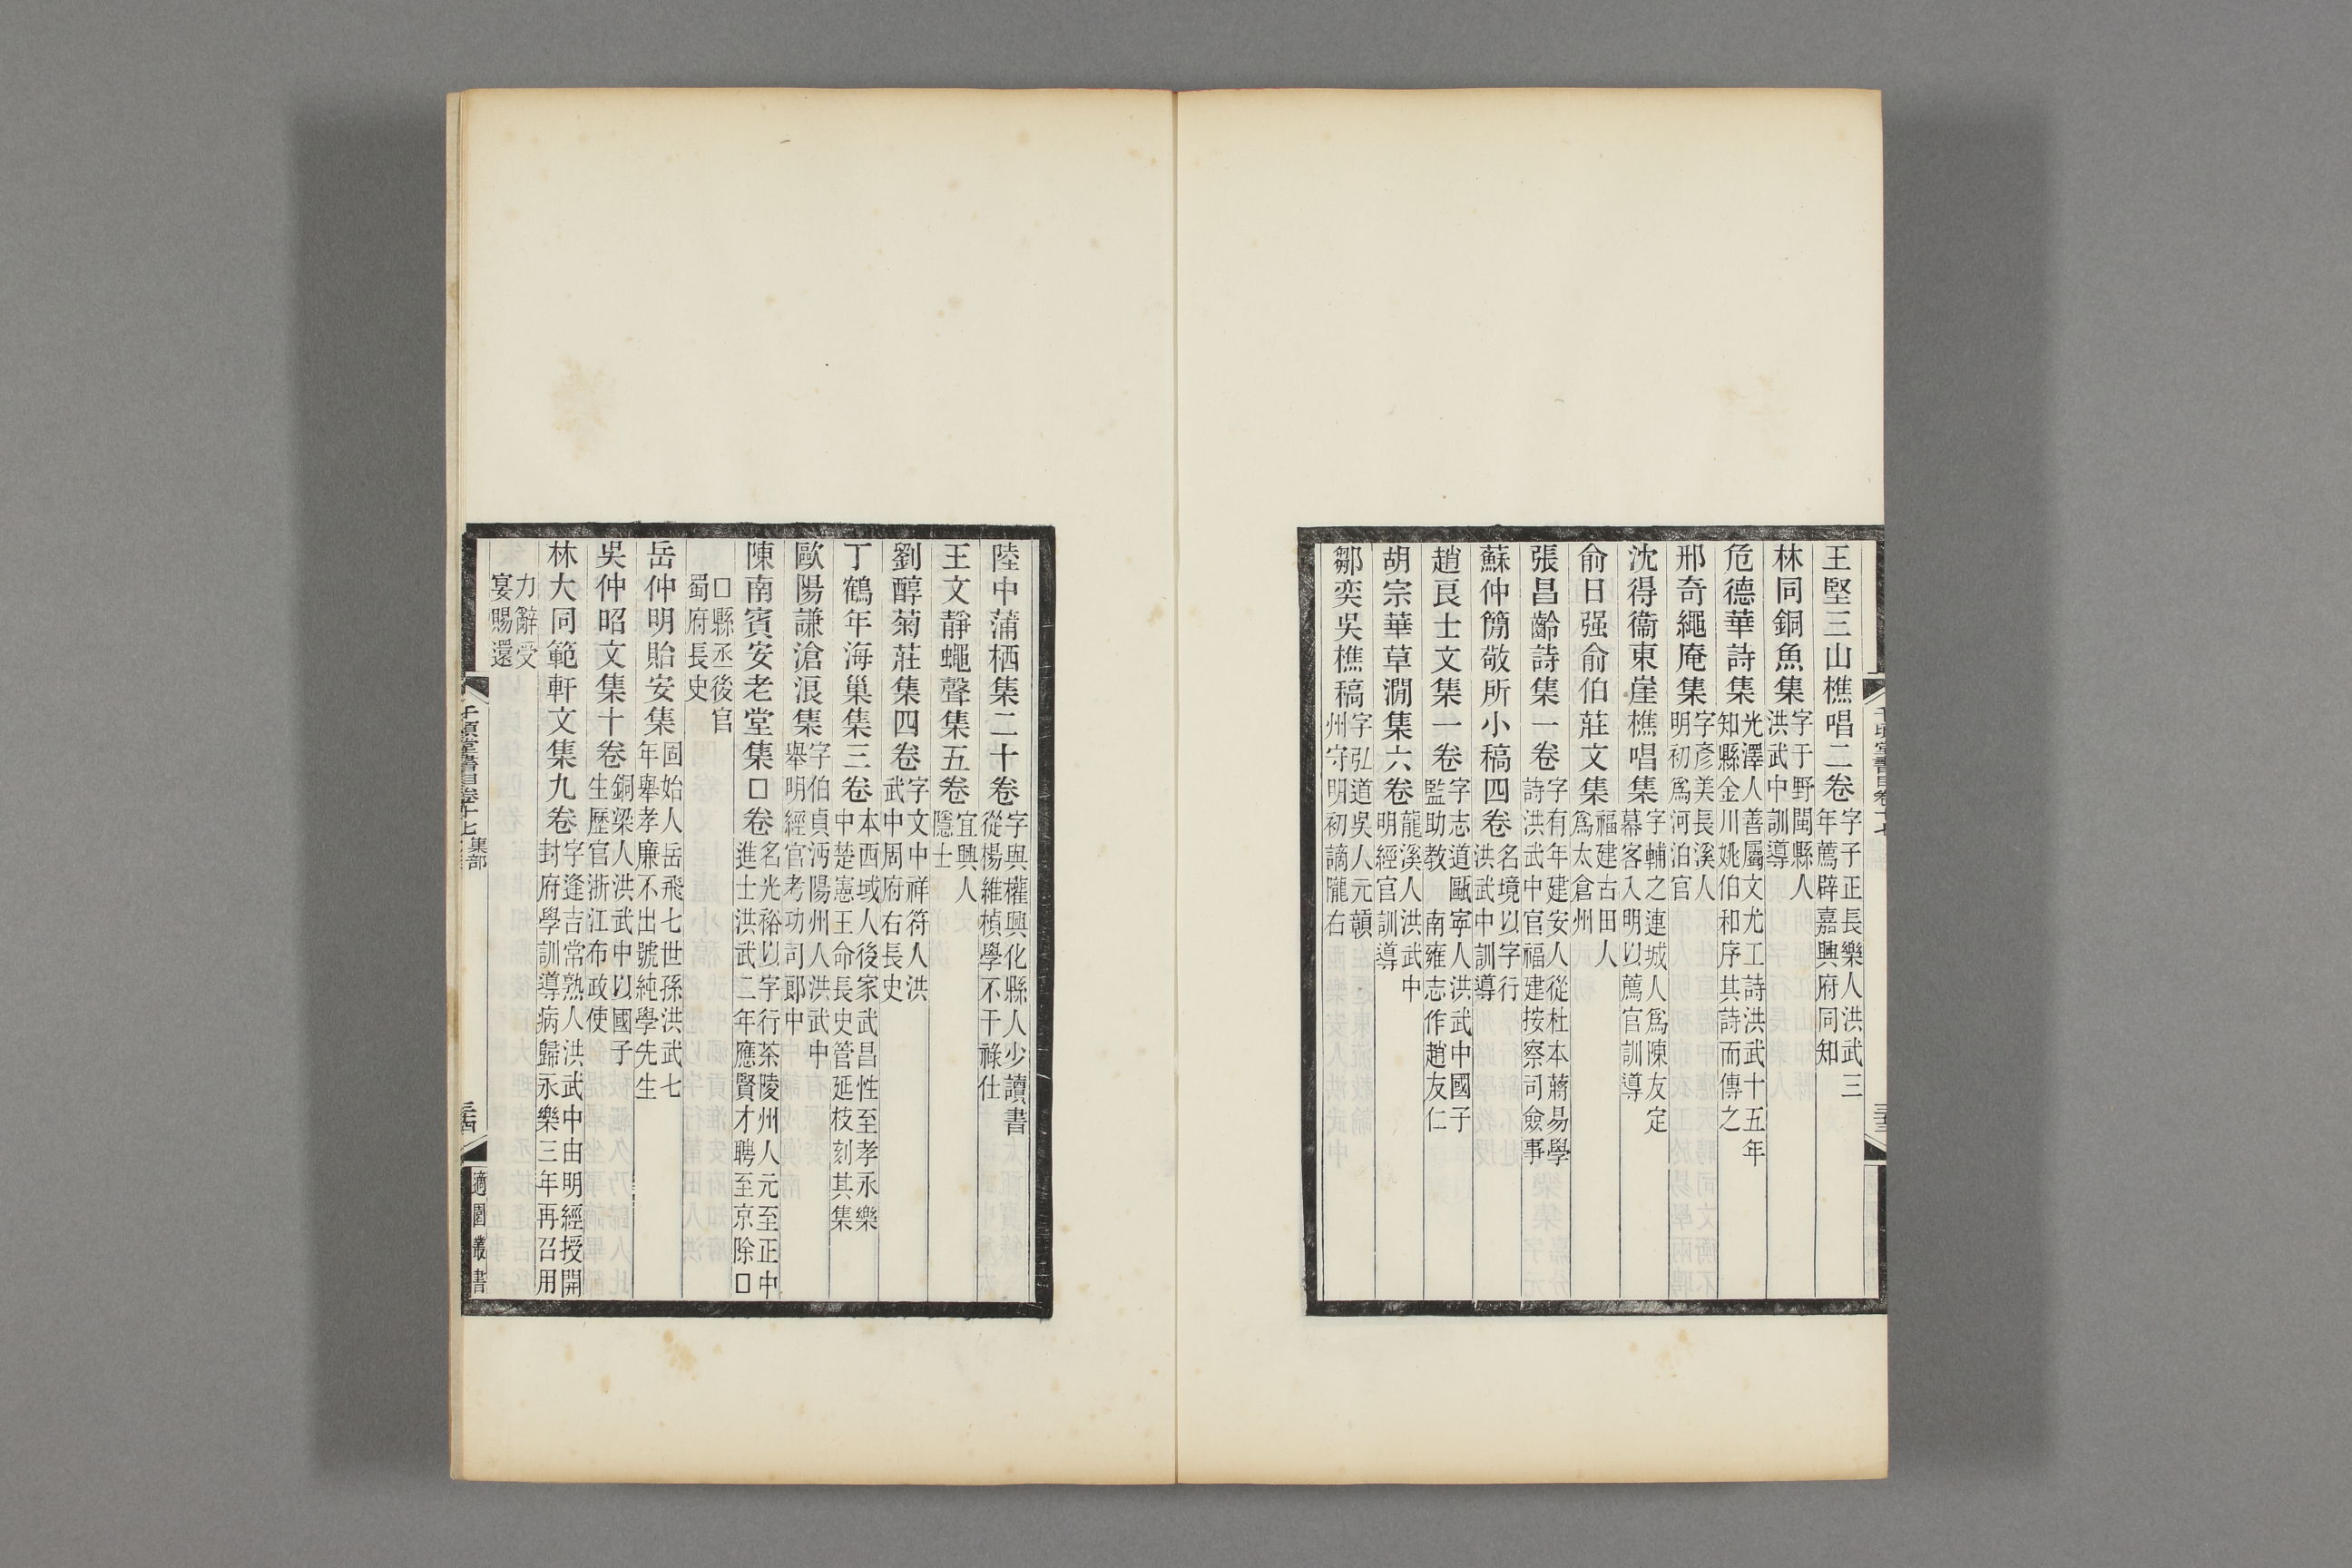 王堅三山樵唱二卷字子正長樂人洪武三年薦辟嘉興府同知
林同銅魚集字于野閩縣人洪武中訓導
危德華詩集光澤人善屬文尤工詩洪武十五年知縣金川姚伯和序其詩而傳之
邢奇繩庵集字彥美長溪人明初爲河泊官
沈得衞東崖樵唱集字輔之連城人爲陳友定幕客入明以薦官訓導
俞日强俞伯莊文集福建古田人爲太倉州
張昌齡詩集一卷字有年建安人從杜本蔣易學詩洪武中官福建按察司僉事
蘇仲簡敬所小稿四卷名境以字行洪武中訓導
趙良士文集一卷字志道甌寧人洪武中國子監助教 南雍志作趙友仁
胡宗華草澗集六卷龍溪人洪武中明經官訓導
鄒奕吳樵稿字弘道吳人元贑州守明初謫隴右
陸中蒲栖集二十卷字與權興化縣人少讀書從楊維楨學不干祿仕
王文靜蠅聲集五卷宜興人隱士
劉醇菊莊集四卷字文中祥符人洪武中周府右長史
丁鶴年海巢集三卷本西域人後家武昌性至孝永樂中楚憲王命長史管延枝刻其集
歐陽謙滄浪集字伯貞沔陽州人洪武中舉明經官考功司郎中
陳南賓安老堂集□卷名光裕以字行茶陵州人元至正中進士洪武二年應賢才聘至京除□
□縣丞後官蜀府長史
岳仲明貽安集固始人岳飛七世孫洪武七年舉孝廉不出號純學先生
吳仲昭文集十卷銅梁人洪武中以國子生歷官浙江布政使
林大同範軒文集九卷字逢吉常熟人洪武中由明經授開封府學訓導病歸永樂三年再召用
力辭受宴賜還
千頃堂書目卷十七 集部
三十四
適園叢書